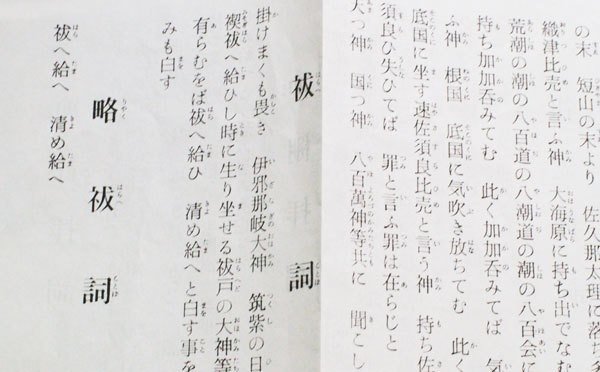 の末 短山の末より 佐久那太理に落ち
織津比売と言ふ神 大海原に持ち出でなむ
荒潮の潮の八百道の八潮道の潮の八百会に
持ち加加呑みてむ 此く加加呑みてば 気
ふ神 根国 底国に気吹き放ちてむ 此く
底国に坐す速佐須良比売と言う神 持ち佐
須良ひ失ひてば 罪と言ふ罪は在らじと
天つ神 国つ神 八百萬神等共に 聞こし
祓詞
掛けまくも畏き 伊邪那岐大神 筑紫の日
禊祓へ給ひし時に生り坐せる祓戸の大神等
有らむをば祓へ給ひ 清め給へと白す事を
みも白す
略祓詞
祓へ給へ 清め給へ